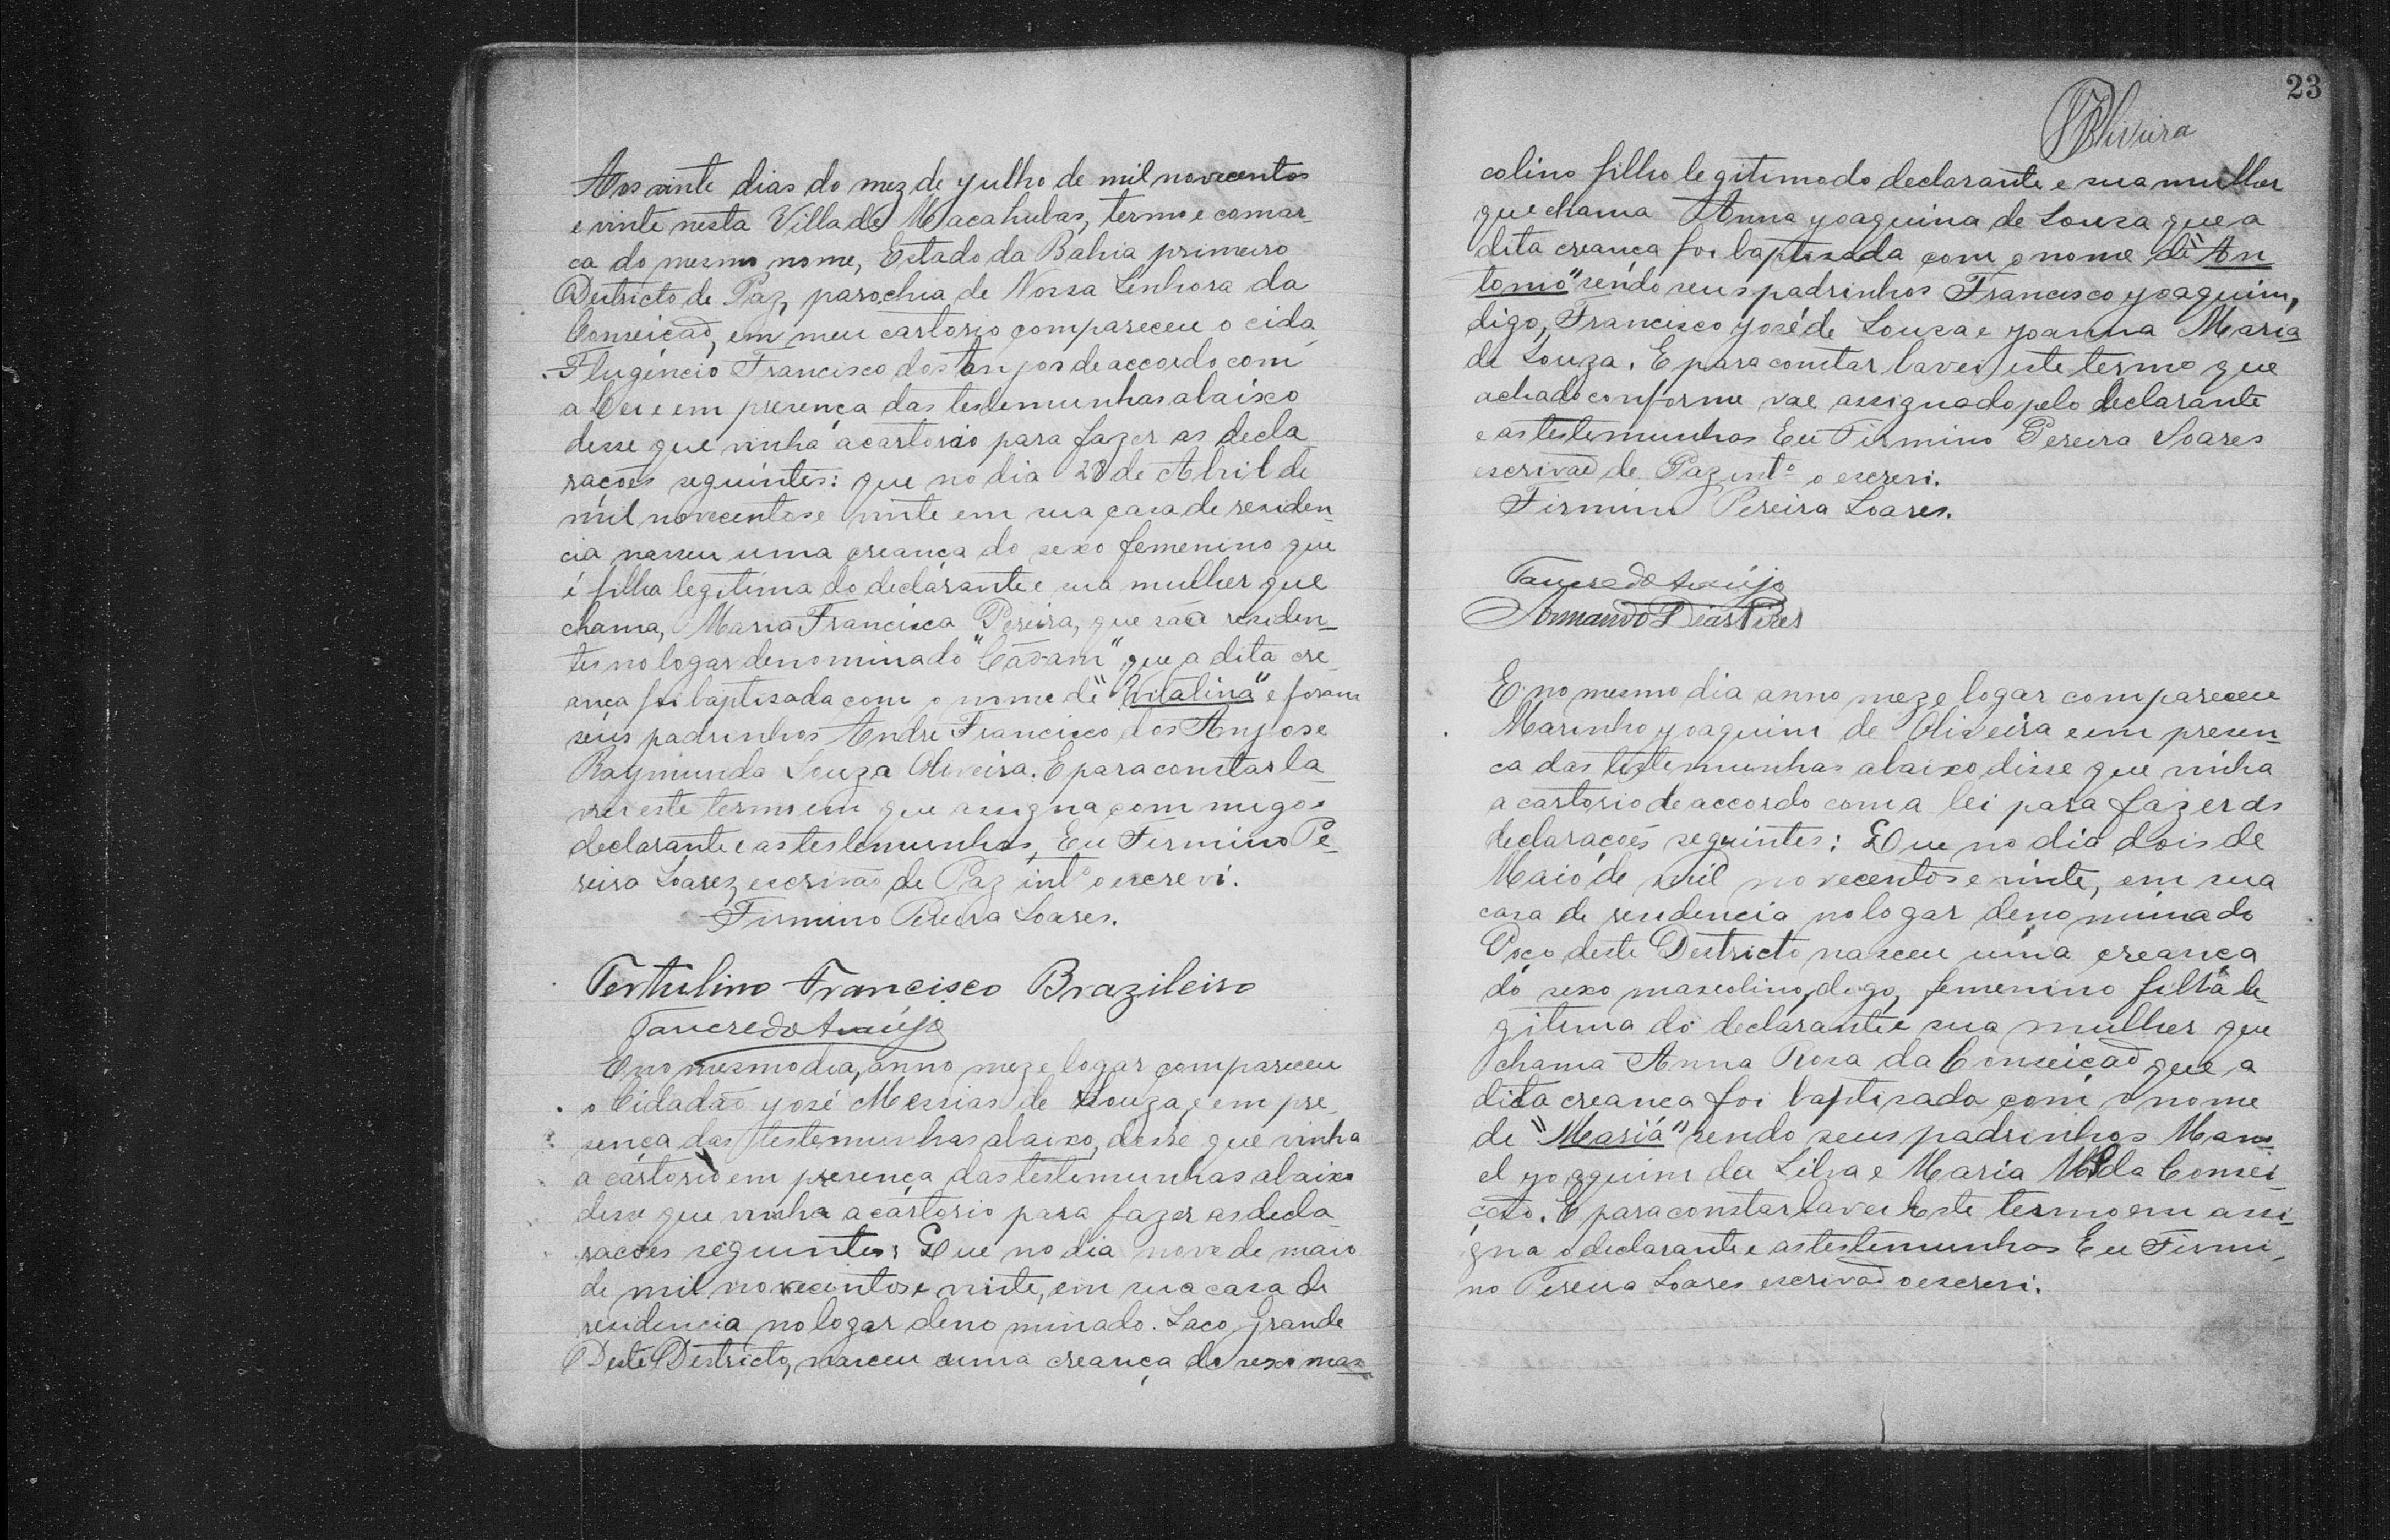 Aos vinte dias do mez de julho de mil novecentos
e vinte nesta Villa de Macahubas, termo e comar-
ca do mesmo nome, Estado da Bahia primeiro
Destricto de Paz, parochia de Nossa Senhora da
Conseicão, em meu cartorio compareceu o cida
Flugencio Francisco dos Anjos de accordo com
a Lei e em presença das testemunhas abaixo
desse que vinha a cartorio para fazer as decla
rações seguintes: que no dia 28 de Abril de
mil novecentos e vinte em sua casa de residen-
cia nasceu uma creança do sexo femenino que
é filha legitima do declarante e sua mulher que
chama, Maria Francisca Pereira, que são residen-
tes no logar denominado "Cadam" que a dita cre-
ança foi baptisada com o nome de "Vitalina" e foram
seus padrinhos Andre Francisco dos Anjos e
Raymunda Souza Oliveira. E para constar la-
vrei este termo em que assigna commigo o
declarante e as testemunhas, Eu Firmino Pe-
reira Soares, escrivão de Paz intº o escrevi.
Firmino Pereira Soares.
Tertulino Francisco Brazileiro
Tancredo Araújo
E no mesmo dia, anno mez e logar compareceu
o Cidadão José Messias de Souza, e em pre-
sença das testemunhas abaixo, desse que vinha
a cartorio em presença das testemunhas abaixo
desse que vinha a cartorio para fazer as decla
racoes seguintes: Que no dia nove de maio
de mil novecentos e vinte, em sua casa de
residencia no logar denominado Saco Grande
Deste Destricto, nasceu uma creança do sexo mas
23
Oliveira
colino filho legitimo do declarante e sua mulher
que chama Anna Joaquina de Souza que a
dita creança foi baptisada com o nome de "An
tonio" sendo seus padrinhos Francisco Joaquim,
digo, Francisco José de Souza e Joanna Maria
de Souza. E para constar lavrei este termo que
achado conforme vae assignado pelo declarante
e as testemunhas Eu Firmino Pereira Soares
escrivão de Paz intº o escrevi.
Firmino Pereira Soares.
Tancredo Araújo
Armando Dias Pires
E no mesmo dia anno mez e logar compareceu
Marinho Joaquim de Oliveira e em presen-
ca das testemunhas abaixo disse que vinha
a cartorio de accordo com a lei para fazer as
declarações seguintes: Que no dia dois de
Maio de mil novecentos e vinte, em sua
casa de residencia no logar denominado
Poço deste Destricto nasceu uma creança
do sexo mascolino, digo, femenino filha le-
gitima do declarante e sua mulher que
chama Anna Rosa da Conseicão que a
dita creança foi baptisada com o nome
de "Maria" sendo seus padrinhos Mano-
el Joaquim da Silva e Maria da Consei-
cão. E para constar lavrei este termo em assi-
gna o declarante e as testemunhas Eu Firmi-
no Pereira Soares escrivão o escrevi.